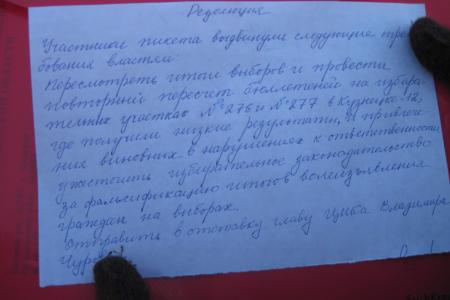 Резолюция
Участники пикета выдвинули следующие тре-
бования властям:
Пересмотреть итоги выборов и провести
повторный пересчет бюллетеней на избира-
тельных участках №276 и №277 в Кузнецке-12,
где получили низкие результаты, и привлече-
ния виновных в нарушениях к ответственности
ужесточить избирательное законодательство
за фальсификацию итогов волеизъявления
граждан на выборах.
Отправить в отставку главу ЦИКа Владимира
Чурова